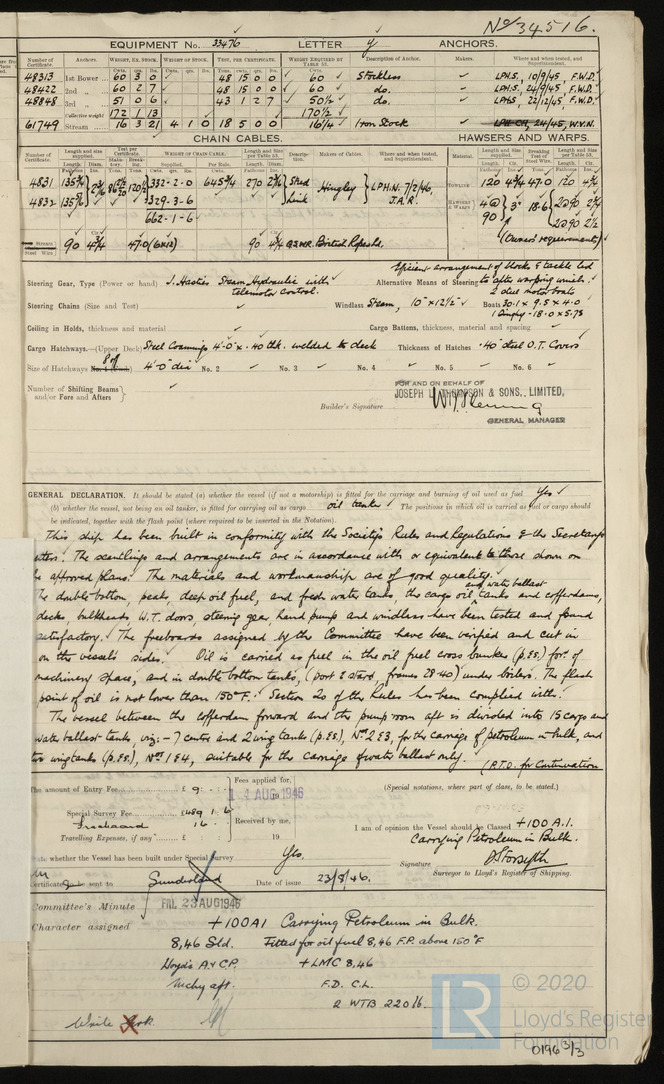 No 34516.
EQUIPMENT No. 33476 LETTER y ANCHORS.
Number of Certificate. Anchors. WEIGHT, EX. STOCK. WEIGHT OF STOCK. TEST, PER CERTIFICATE. WEIGHT REQUIRED BY TABLE 53. Description of Anchor. Makers. Where and when tested, and Superintendent.
48313 1st Bower 60 3 0 48 15 0 0 60 Stockless LPH.S., 10/9/45, F.W.D.
48422 2nd 60 2 7 48 15 0 0 60 do. LPH.S, 24/9/45, F.W.D.
48848 3rd 51 0 6 43 1 2 7 50½ do. LPHS, 22/12/45, F.W.D.
Collective weight 172 1 13 170½
61749 Stream 16 3 21 4 1 0 18 5 0 0 16¼ Iron Stock 24/45, W.V.N.
CHAIN CABLES. HAWSERS AND WARPS.
Number of Certificate. Length and size supplied. Test per Certificate. WEIGHT OF CHAIN CABLE. Length and Size per Table 53. Description. Makers of Cables. Where and when tested, and Superintendent. Material. Length and Size supplied. Breaking Test of Steel Wire. Length and Size per Table 53.
4831 135¾ 332-2-0 645¾ 270 Stud Hingley LPH.N. 7/2/46, TOWLINE 120 4¾ 47.0 120 4¾
4832 135 329-3-6 Link J.A.R. HAWSERS & WARPS 4 @ 90 3" 18.6 2@90 2¾
662-1-6 2@90 2½
Stream Steel Wire 90 4¾ 47.0 (6x12) 90 4¾ British Ropes Ld. (Owner's requirements)
Steering Gear, Type (Power or hand) J. Hasties Steam Hydraulic with telemotor control.
Alternative Means of Steering Efficient arrangement of blocks & tackle led to after warping winch.
Steering Chains (Size and Test) Windlass Steam, 10" x 12½" Boats 2 steel motor boats 30.1 x 9.5 x 4.0
1 Dinghy - 18.0 x 5.75
Ceiling in Holds, thickness and material Cargo Battens, thickness, material and spacing
Cargo Hatchways.—(Upper Deck) Steel Coamings 4'-0" x .40 thk. welded to deck Thickness of Hatches .40" steel O.T. Covers
Size of Hatchways 8 off 4'-0" dia No. 2 No. 3 No. 4 No. 5 No. 6
Number of Shifting Beams and/or Fore and Afters
FOR AND ON BEHALF OF
JOSEPH L. THOMPSON & SONS, LIMITED,
Builder's Signature
GENERAL MANAGER
GENERAL DECLARATION. It should be stated (a) whether the vessel (if not a motorship) is fitted for the carriage and burning of oil used as fuel Yes
(b) whether the vessel, not being an oil tanker, is fitted for carrying oil as cargo oil tanker The positions in which oil is carried as fuel or cargo should
be indicated, together with the flash point (where required to be inserted in the Notation).
This ship has been built in conformity with the Society's Rules and Regulations & the Secretary's
letters. The scantlings and arrangements are in accordance with or equivalent to those shown on
the approved plans. The materials and workmanship are of good quality.
The double bottom, peaks, deep oil fuel, and fresh water tanks, the cargo oil and water ballast tanks and cofferdams,
decks, bulkheads, W.T. doors, steering gear, hand pump and windlass have been tested and found
satisfactory. The freeboards assigned by the Committee have been verified and cut in
on the vessel's sides. Oil is carried as fuel in the oil fuel cross bunker (p.&s.) for'd of
machinery space, and in double bottom tanks, (port & star'd, frames 28-40) under boilers. The flash
point of oil is not lower than 150°F. Section 20 of the Rules has been complied with.
The vessel between the cofferdam forward and the pump room aft is divided into 15 cargo and
water ballast tanks, viz:- 7 centre and 2 wing tanks (p.&s.), Nos 2 & 3, for the carriage of petroleum in bulk, and
two wing tanks (p.&s.), Nos 1 & 4, suitable for the carriage of water ballast only. (P.T.O. for Continuation
The amount of Entry Fee £ 9 Fees applied for, AUG 1946 (Special notations, where part of class, to be stated.)
Special Survey Fee £489 1 6
Freeboard 16 Received by me,
Travelling Expenses, if any £ 19
I am of opinion the Vessel should be Classed +100 A.1.
Carrying Petroleum in Bulk.
State whether the Vessel has been built under Special Survey Yes. Signature D. Forsyth
Surveyor to Lloyd's Register of Shipping.
Certificate to be sent to Sunderland Date of issue 23/8/46.
Committee's Minute FRI. 23 AUG 1946
Character assigned +100A1 Carrying Petroleum in Bulk.
8,46 Sld. Fitted for oil fuel 8,46 F.P. above 150°F
Lloyd's A & C.P. +LMC 8,46
Mchy aft. F.D. C.L.
2 WTB 220 lb.
Write
© 2020
LR Lloyd's Register
Foundation
0196 3/3